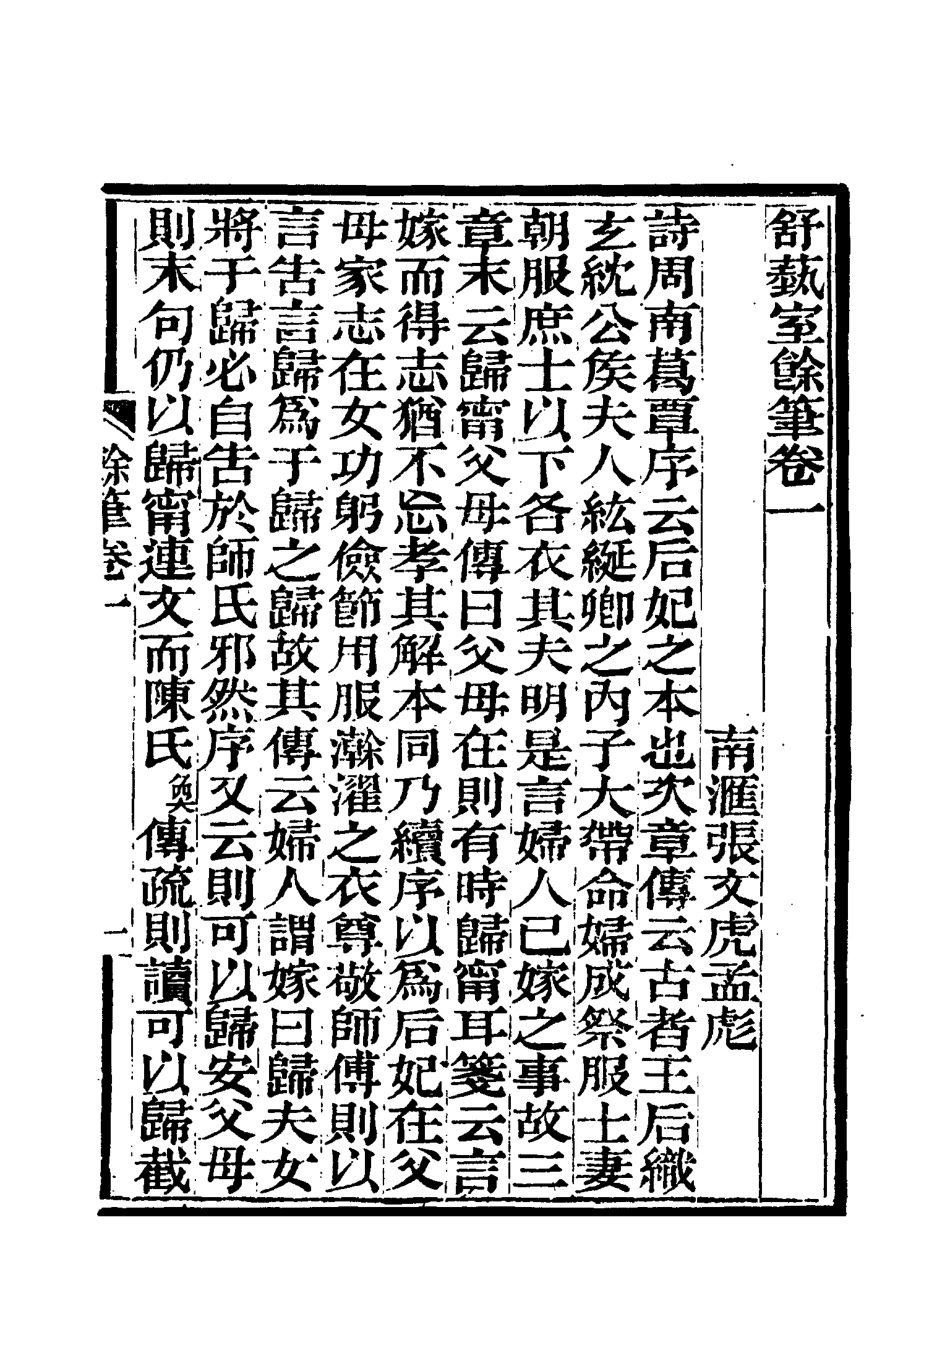 舒藝室餘筆卷一
南滙張文虎孟彪
詩周南葛覃序云后妃之本也次章傳云古者王后織
玄紞公矦夫人紘綖卿之內子大帶命婦成祭服士妻
朝服庶士以下各衣其夫明是言婦人已嫁之事故三
章末云歸甯父母傳曰父母在則有時歸甯耳箋云言
嫁而得志猶不忘孝其解本同乃續序以爲后妃在父
母家志在女功躬儉節用服澣濯之衣尊敬師傅則以
言吿言歸爲于歸之歸故其傳云婦人謂嫁曰歸夫女
將于歸必自吿於師氏邪然序又云則可以歸安父母
則末句仍以歸甯連文而陳氏奐傳疏則讀可以歸截
餘筆卷一
一